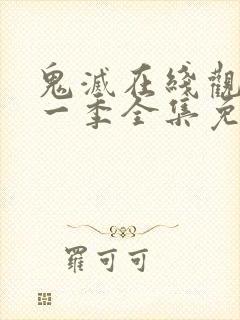 鬼滅在綫觀
一季全集免
羅可可